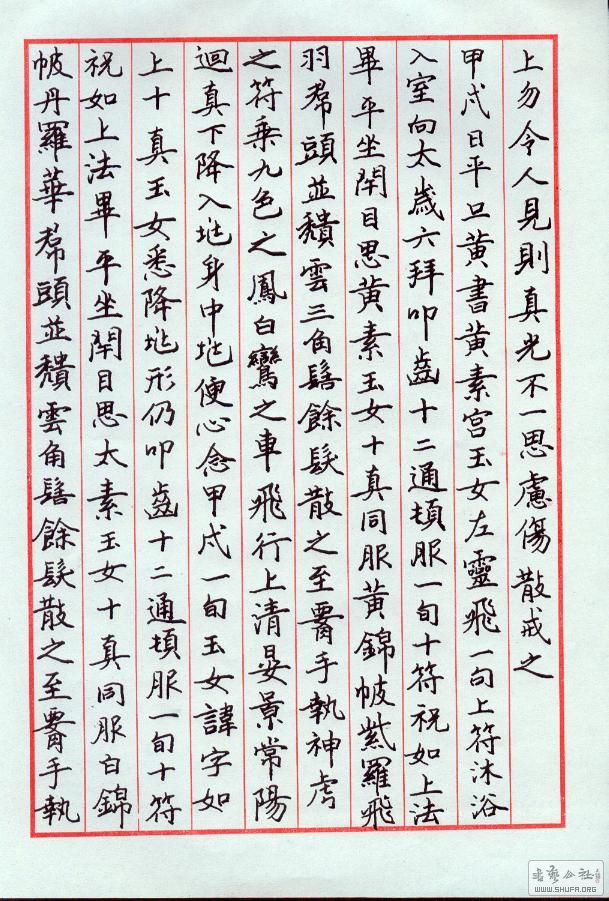 上勿令人見則真光不一思慮傷散戒之
甲戌日平旦黃書黃素宮玉女左靈飛一旬上符沐浴
入室向太歲六拜叩齒十二通頓服一旬十符祝如上法
畢平坐閉目思黃素玉女十真同服黃錦帔紫羅飛
羽帬頭並穨雲三角髻餘髮散之至𦝫手執神虎
之符乗九色之鳳白鸞之車飛行上清晏景常陽
迴真下降入𡊮身中𡊮便心念甲戌一旬玉女諱字如
上十真玉女悉降𡊮形仍叩齒十二通頓服一旬十符
祝如上法畢平坐閉目思太素玉女十真同服白錦
帔丹羅華帬頭並穨雲角髻餘髮散之至𦝫手執
书艺公社
WWW.SHUFA.ORG